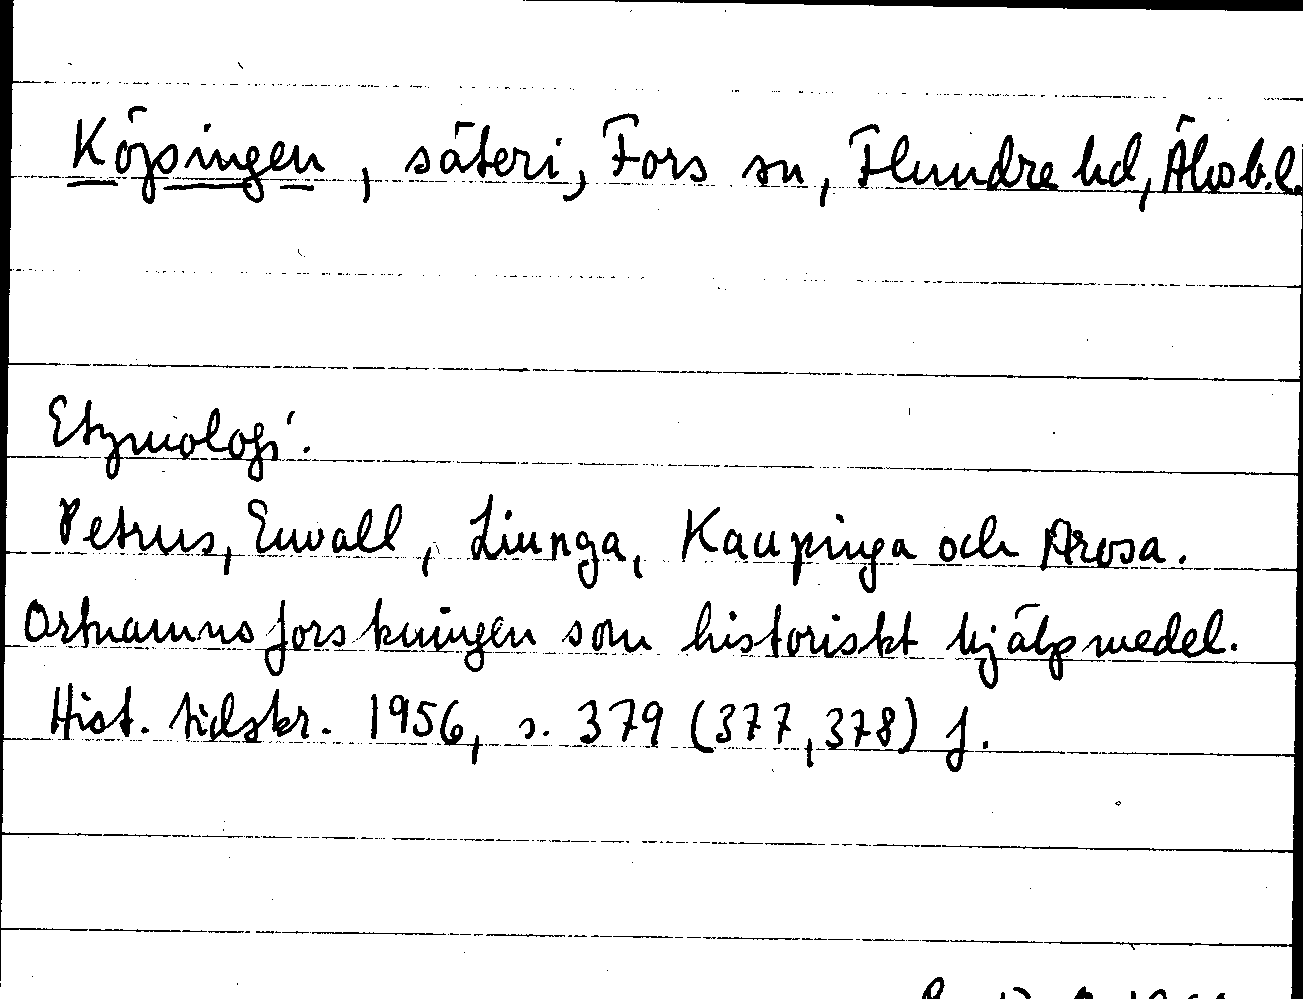 Köpingen, säteri, Fors sn, Flundre hd, Älvsb.l.
Etymologi.
Petrus, Envall, Liunga, Kaupinga och Arosa.
Ortnamnsforskningen som historiskt hjälpmedel.
Hist. tidskr. 1956, s. 379 (377, 378) f.